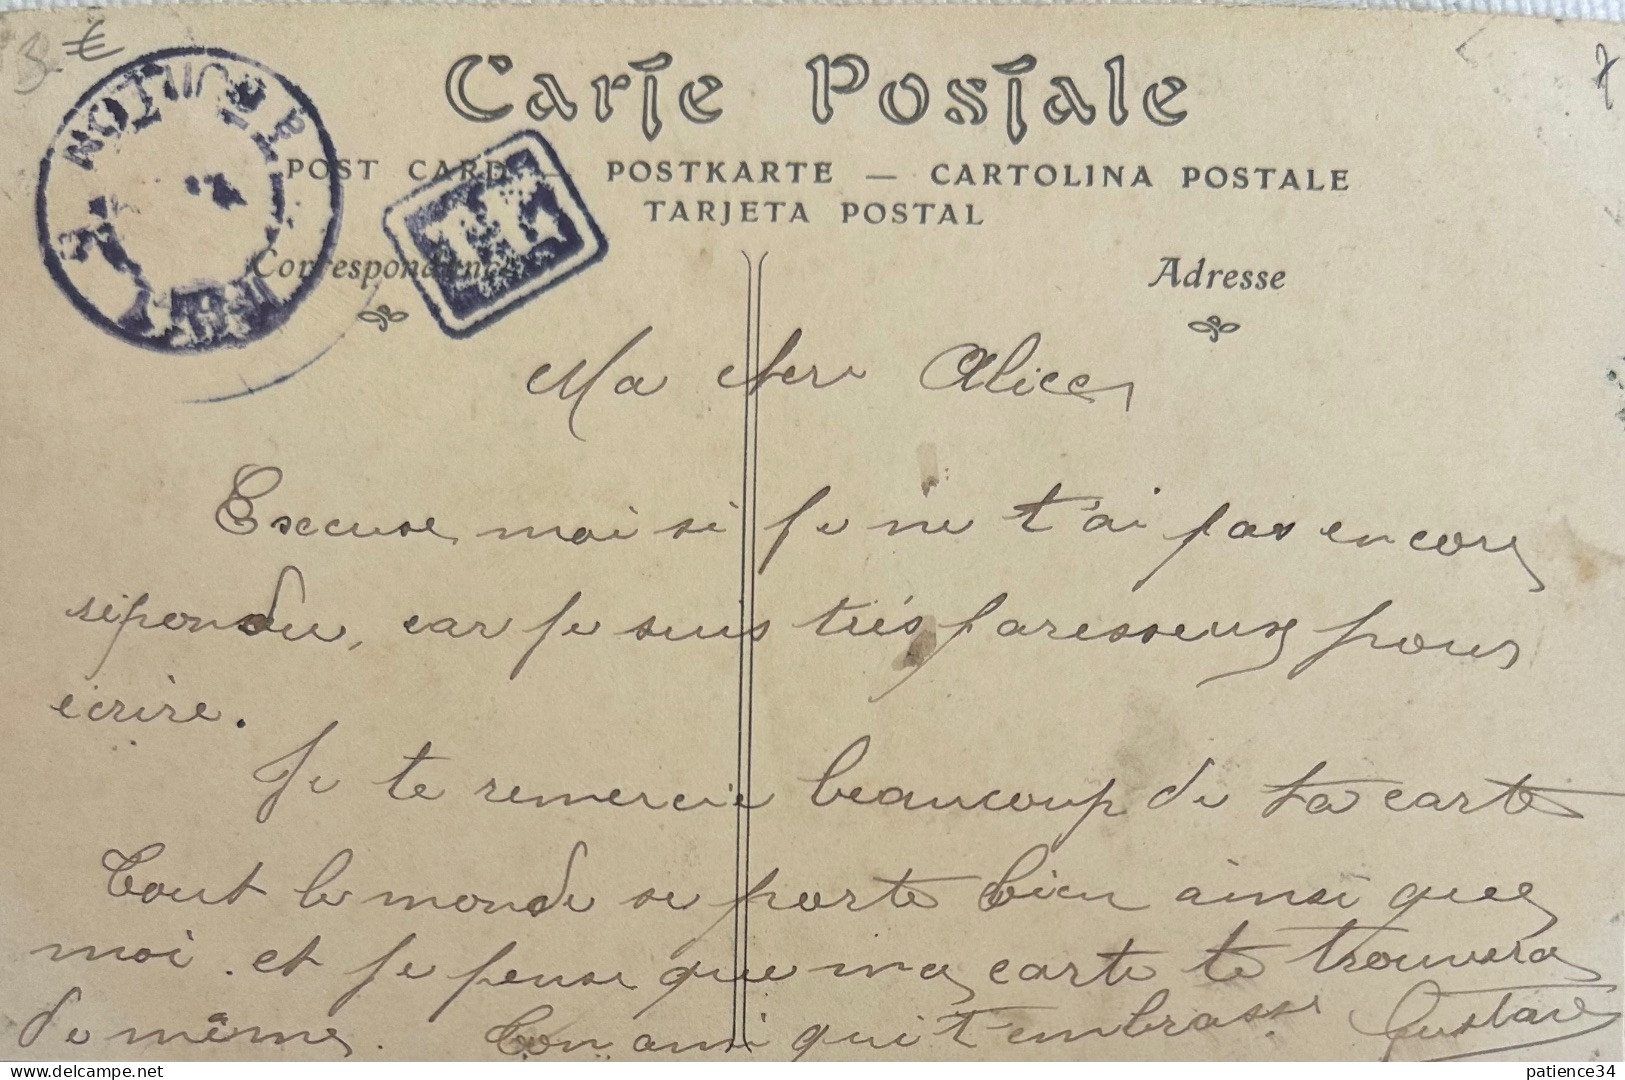 3 €
Carte Postale
POST CARD — POSTKARTE — CARTOLINA POSTALE
TARJETA POSTAL
Correspondance
Adresse
Ma cher Alice
Excuse moi si je ne t'ai pas encore
répondu, car je suis très paresseux pour
écrire.
Je te remercie beaucoup de ta carte
Tout le monde se porte bien ainsi que
moi. et je pense que ma carte te trouvera
de même. Ton ami qui t'embrasse Gustave
delcampe.net
patience34